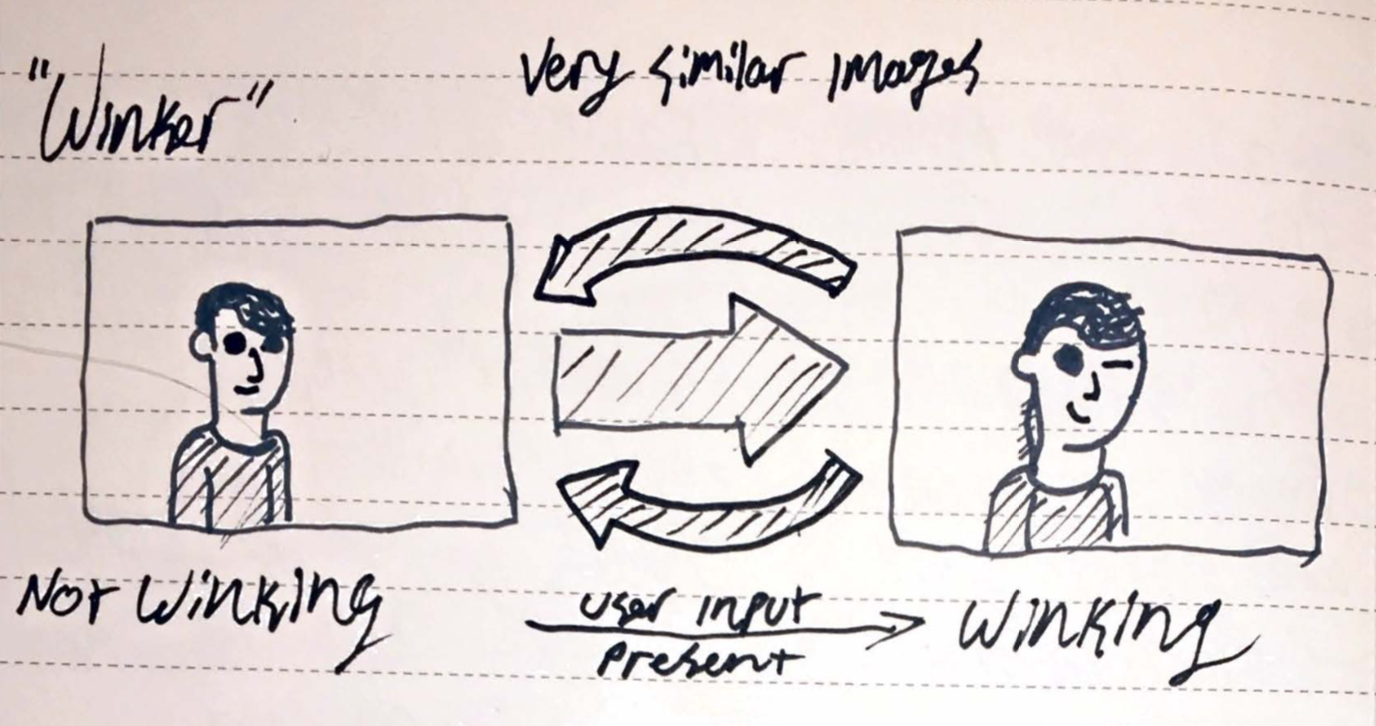 "Winker"
Very similar images
Not Winking
user input
Present
Winking